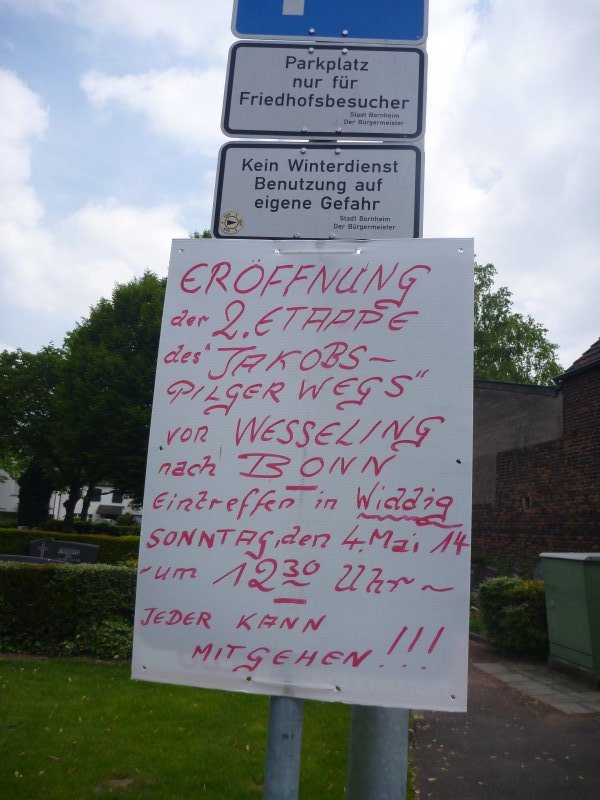 Parkplatz
nur für
Friedhofsbesucher
Stadt Bornheim
Der Bürgermeister
Kein Winterdienst
Benutzung auf
eigene Gefahr
Stadt Bornheim
Der Bürgermeister
ERÖFFNUNG
der 2. ETAPPE
des "JAKOBS-
PILGERWEGS"
von WESSELING
nach BONN
Eintreffen in Widdig
SONNTAG, den 4. Mai 14
- um 12 30 Uhr -
JEDER KANN
MITGEHEN !!!